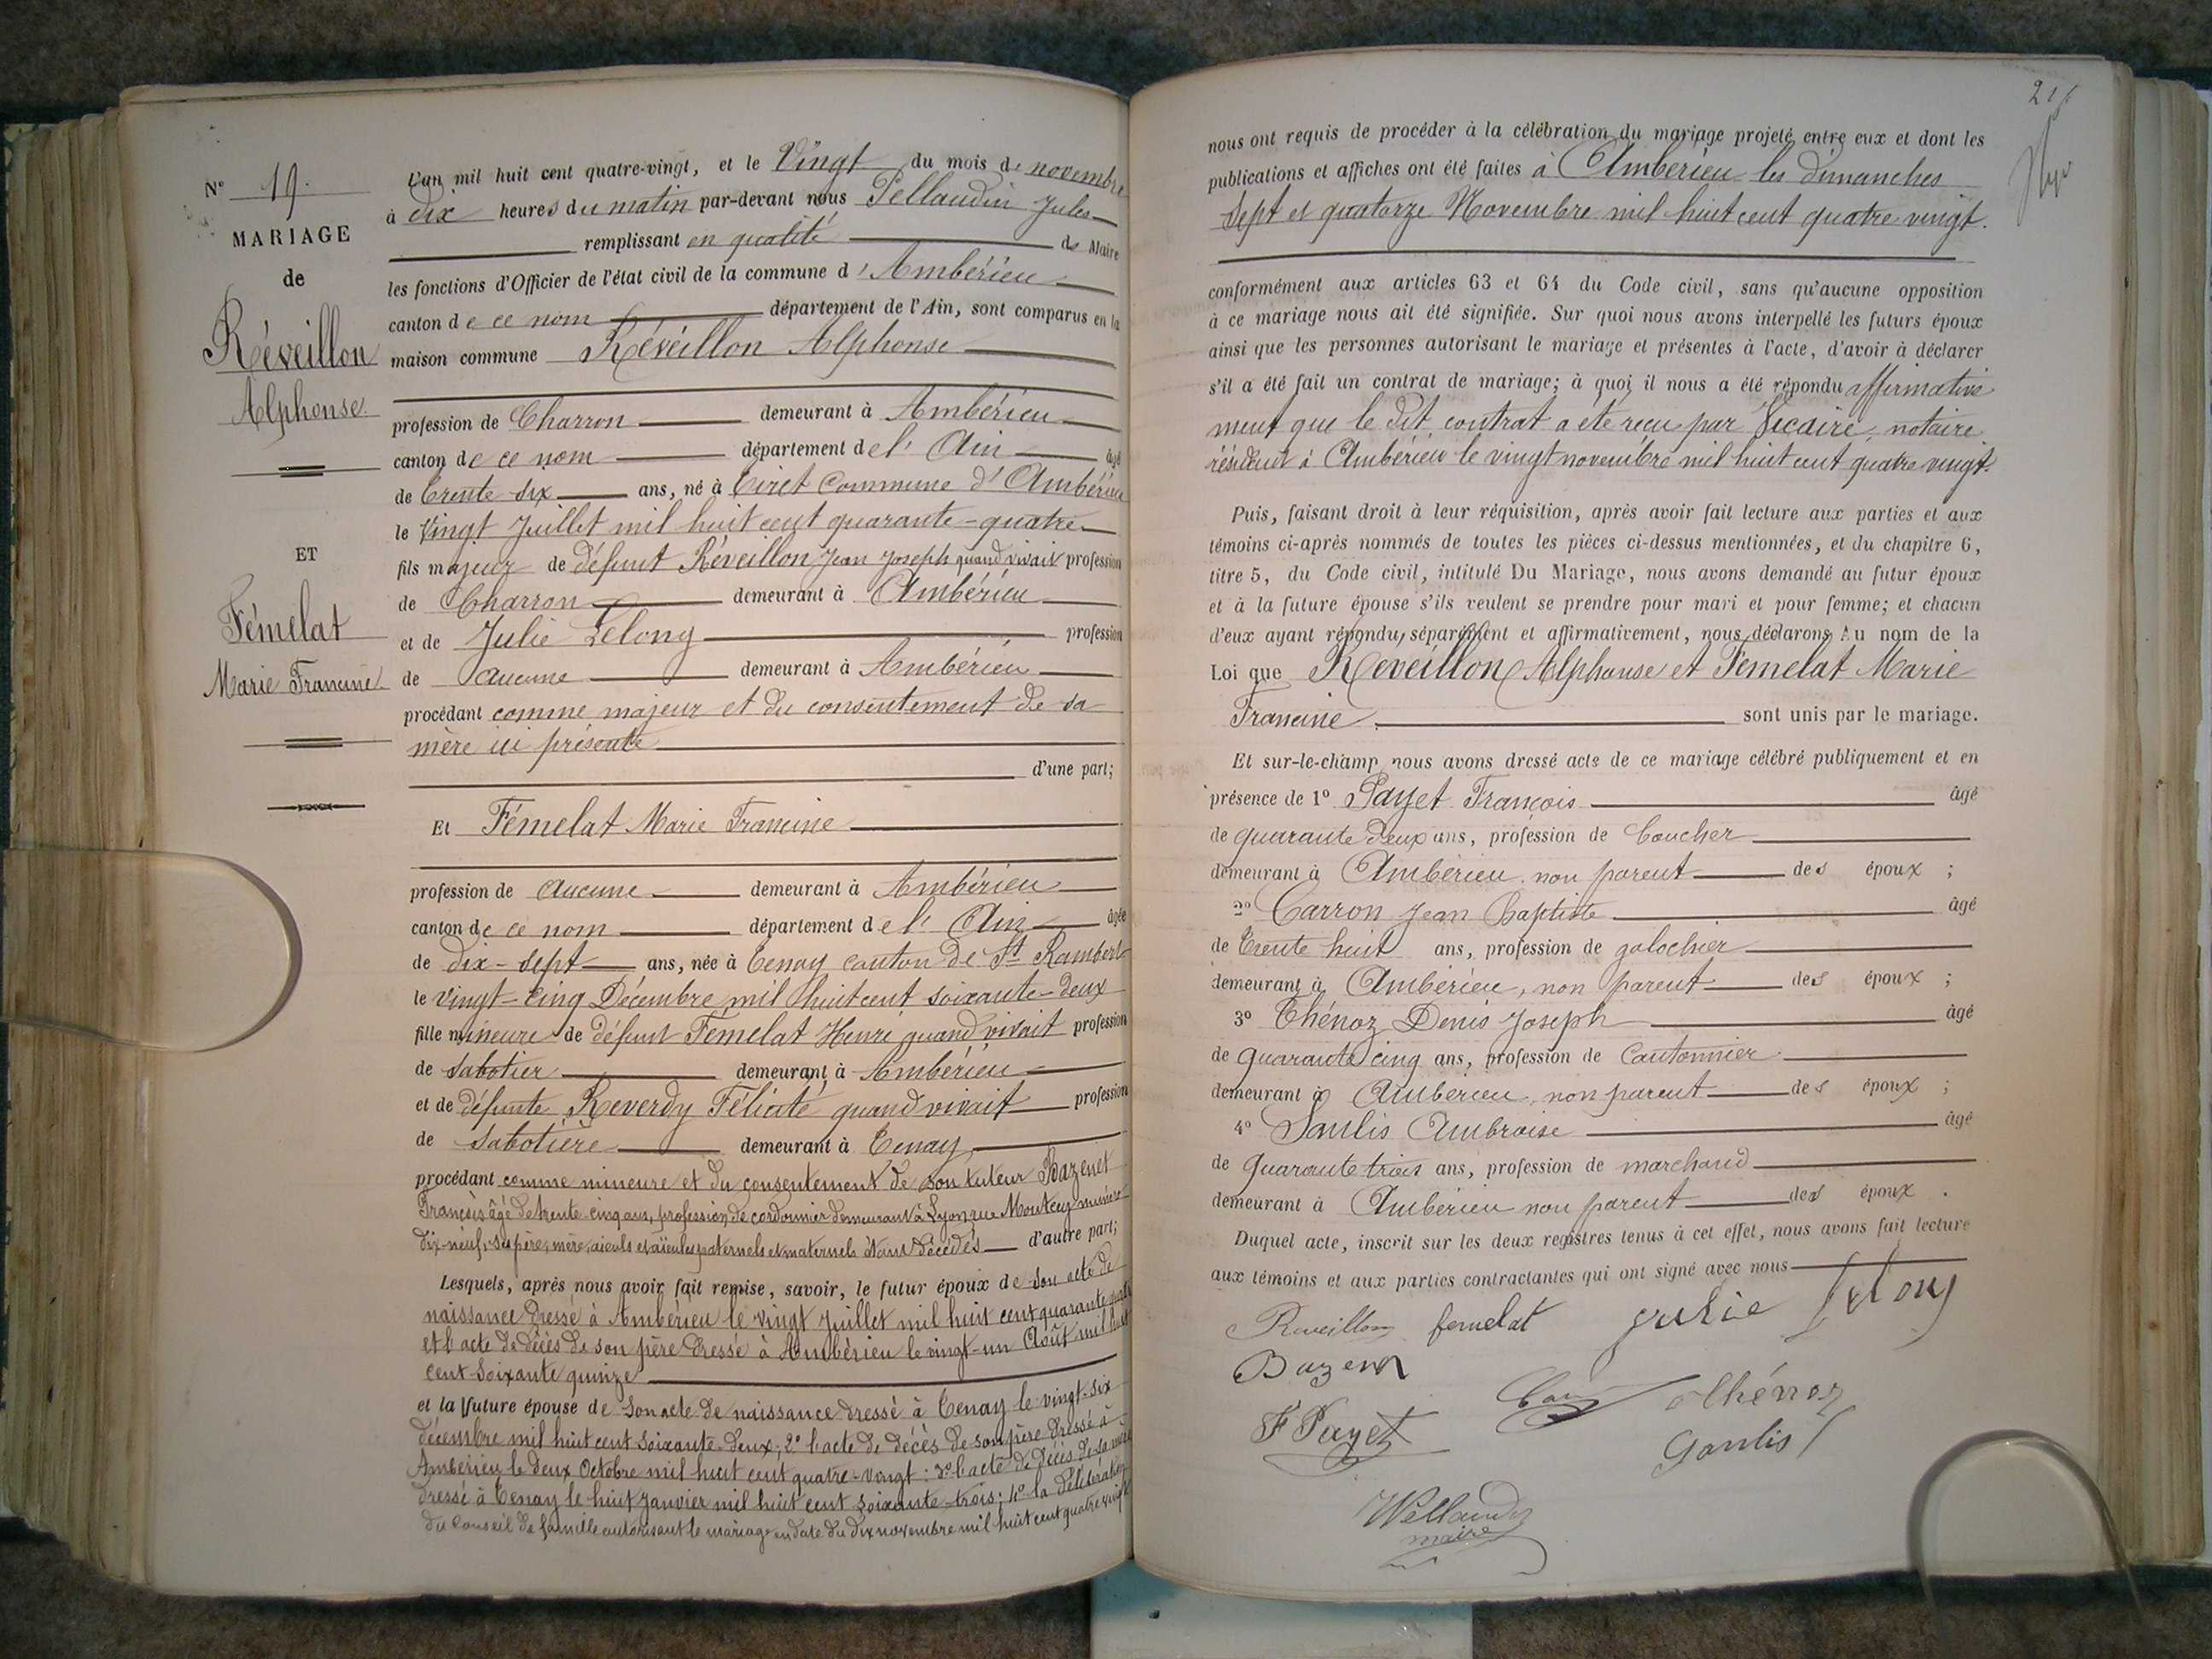 N° 19.
MARIAGE
de
Réveillon
Alphonse
ET
Fémelat
Marie Francine
L'an mil huit cent quatre-vingt, et le Vingt du mois de novembre
à dix heures du matin par-devant nous Pellaudin Jules
remplissant en qualité de Maire
les fonctions d'Officier de l'état civil de la commune d'Ambérieu
canton de ce nom département de l'Ain, sont comparus en la
maison commune Réveillon Alphonse
profession de Charron demeurant à Ambérieu
canton de ce nom département de l'Ain âgé
de trente-six ans, né à Tiret commune d'Ambérieu
le Vingt Juillet mil huit cent quarante-quatre
fils majeur de défunt Réveillon Jean Joseph quand vivait profession
de Charron demeurant à Ambérieu
et de Julie Lelong profession
de aucune demeurant à Ambérieu
procédant comme majeur et du consentement de sa
mère ici présente
d'une part;
Et Fémelat Marie Francine
profession de aucune demeurant à Ambérieu
canton de ce nom département de l'Ain âgée
de dix-sept ans, née à Tenay canton de St Rambert
le vingt-cinq Décembre mil huit cent soixante-deux
fille mineure de défunt Fémelat Henri quand vivait profession
de sabotier demeurant à Ambérieu
et de défunte Reverdy Félicité quand vivait profession
de sabotière demeurant à Tenay
procédant comme mineure et du consentement de son tuteur Bazenet
François âgé de trente-cinq ans, profession de cordonnier demeurant à Lyon rue Moncey numéro
dix-neuf, ses père, mère, aieuls et aïeules paternels et maternels étant décédés d'autre part;
Lesquels, après nous avoir fait remise, savoir, le futur époux de son acte de
naissance dressé à Ambérieu le vingt Juillet mil huit cent quarante quatre
et l'acte de décès de son père dressé à Ambérieu le vingt-un Août mil huit
cent soixante quinze
et la future épouse de son acte de naissance dressé à Tenay le vingt-six
décembre mil huit cent soixante-deux; 2° l'acte de décès de son père dressé à
Ambérieu le deux Octobre mil huit cent quatre-vingt: 3° l'acte de décès de sa mère
dressé à Tenay le huit Janvier mil huit cent soixante-trois; 4° la délibération
du Conseil de famille autorisant le mariage en date du dix novembre mil huit cent quatre vingt
21
nous ont requis de procéder à la célébration du mariage projeté entre eux et dont les
publications et affiches ont été faites à Ambérieu les dimanches
sept et quatorze Novembre mil huit cent quatre vingt.
conformément aux articles 63 et 64 du Code civil, sans qu'aucune opposition
à ce mariage nous ait été signifiée. Sur quoi nous avons interpellé les futurs époux
ainsi que les personnes autorisant le mariage et présentes à l'acte, d'avoir à déclarer
s'il a été fait un contrat de mariage; à quoi il nous a été répondu affirmative
ment que le dit contrat a été reçu par Vicaire, notaire
résident à Ambérieu le vingt novembre mil huit cent quatre vingt.
Puis, faisant droit à leur réquisition, après avoir fait lecture aux parties et aux
témoins ci-après nommés de toutes les pièces ci-dessus mentionnées, et du chapitre 6,
titre 5, du Code civil, intitulé Du Mariage, nous avons demandé au futur époux
et à la future épouse s'ils veulent se prendre pour mari et pour femme; et chacun
d'eux ayant répondu séparément et affirmativement, nous déclarons Au nom de la
Loi que Réveillon Alphonse et Fémelat Marie
Francine sont unis par le mariage.
Et sur-le-champ nous avons dressé acte de ce mariage célébré publiquement et en
présence de 1° Payet François âgé
de quarante deux ans, profession de boucher
demeurant à Ambérieu, non parent des époux ;
2° Carron Jean Baptiste âgé
de trente huit ans, profession de galochier
demeurant à Ambérieu, non parent des époux ;
3° Thénoz Denis Joseph âgé
de quarante cinq ans, profession de Cantonnier
demeurant à Ambérieu, non parent des époux ;
4° Ambroise âgé
de quarante trois ans, profession de marchand
demeurant à Ambérieu non parent des époux.
Duquel acte, inscrit sur les deux registres tenus à cet effet, nous avons fait lecture
aux témoins et aux parties contractantes qui ont signé avec nous
Reveillon femelat julie Lelong
Bazenet
F Payet Thénoz
maire